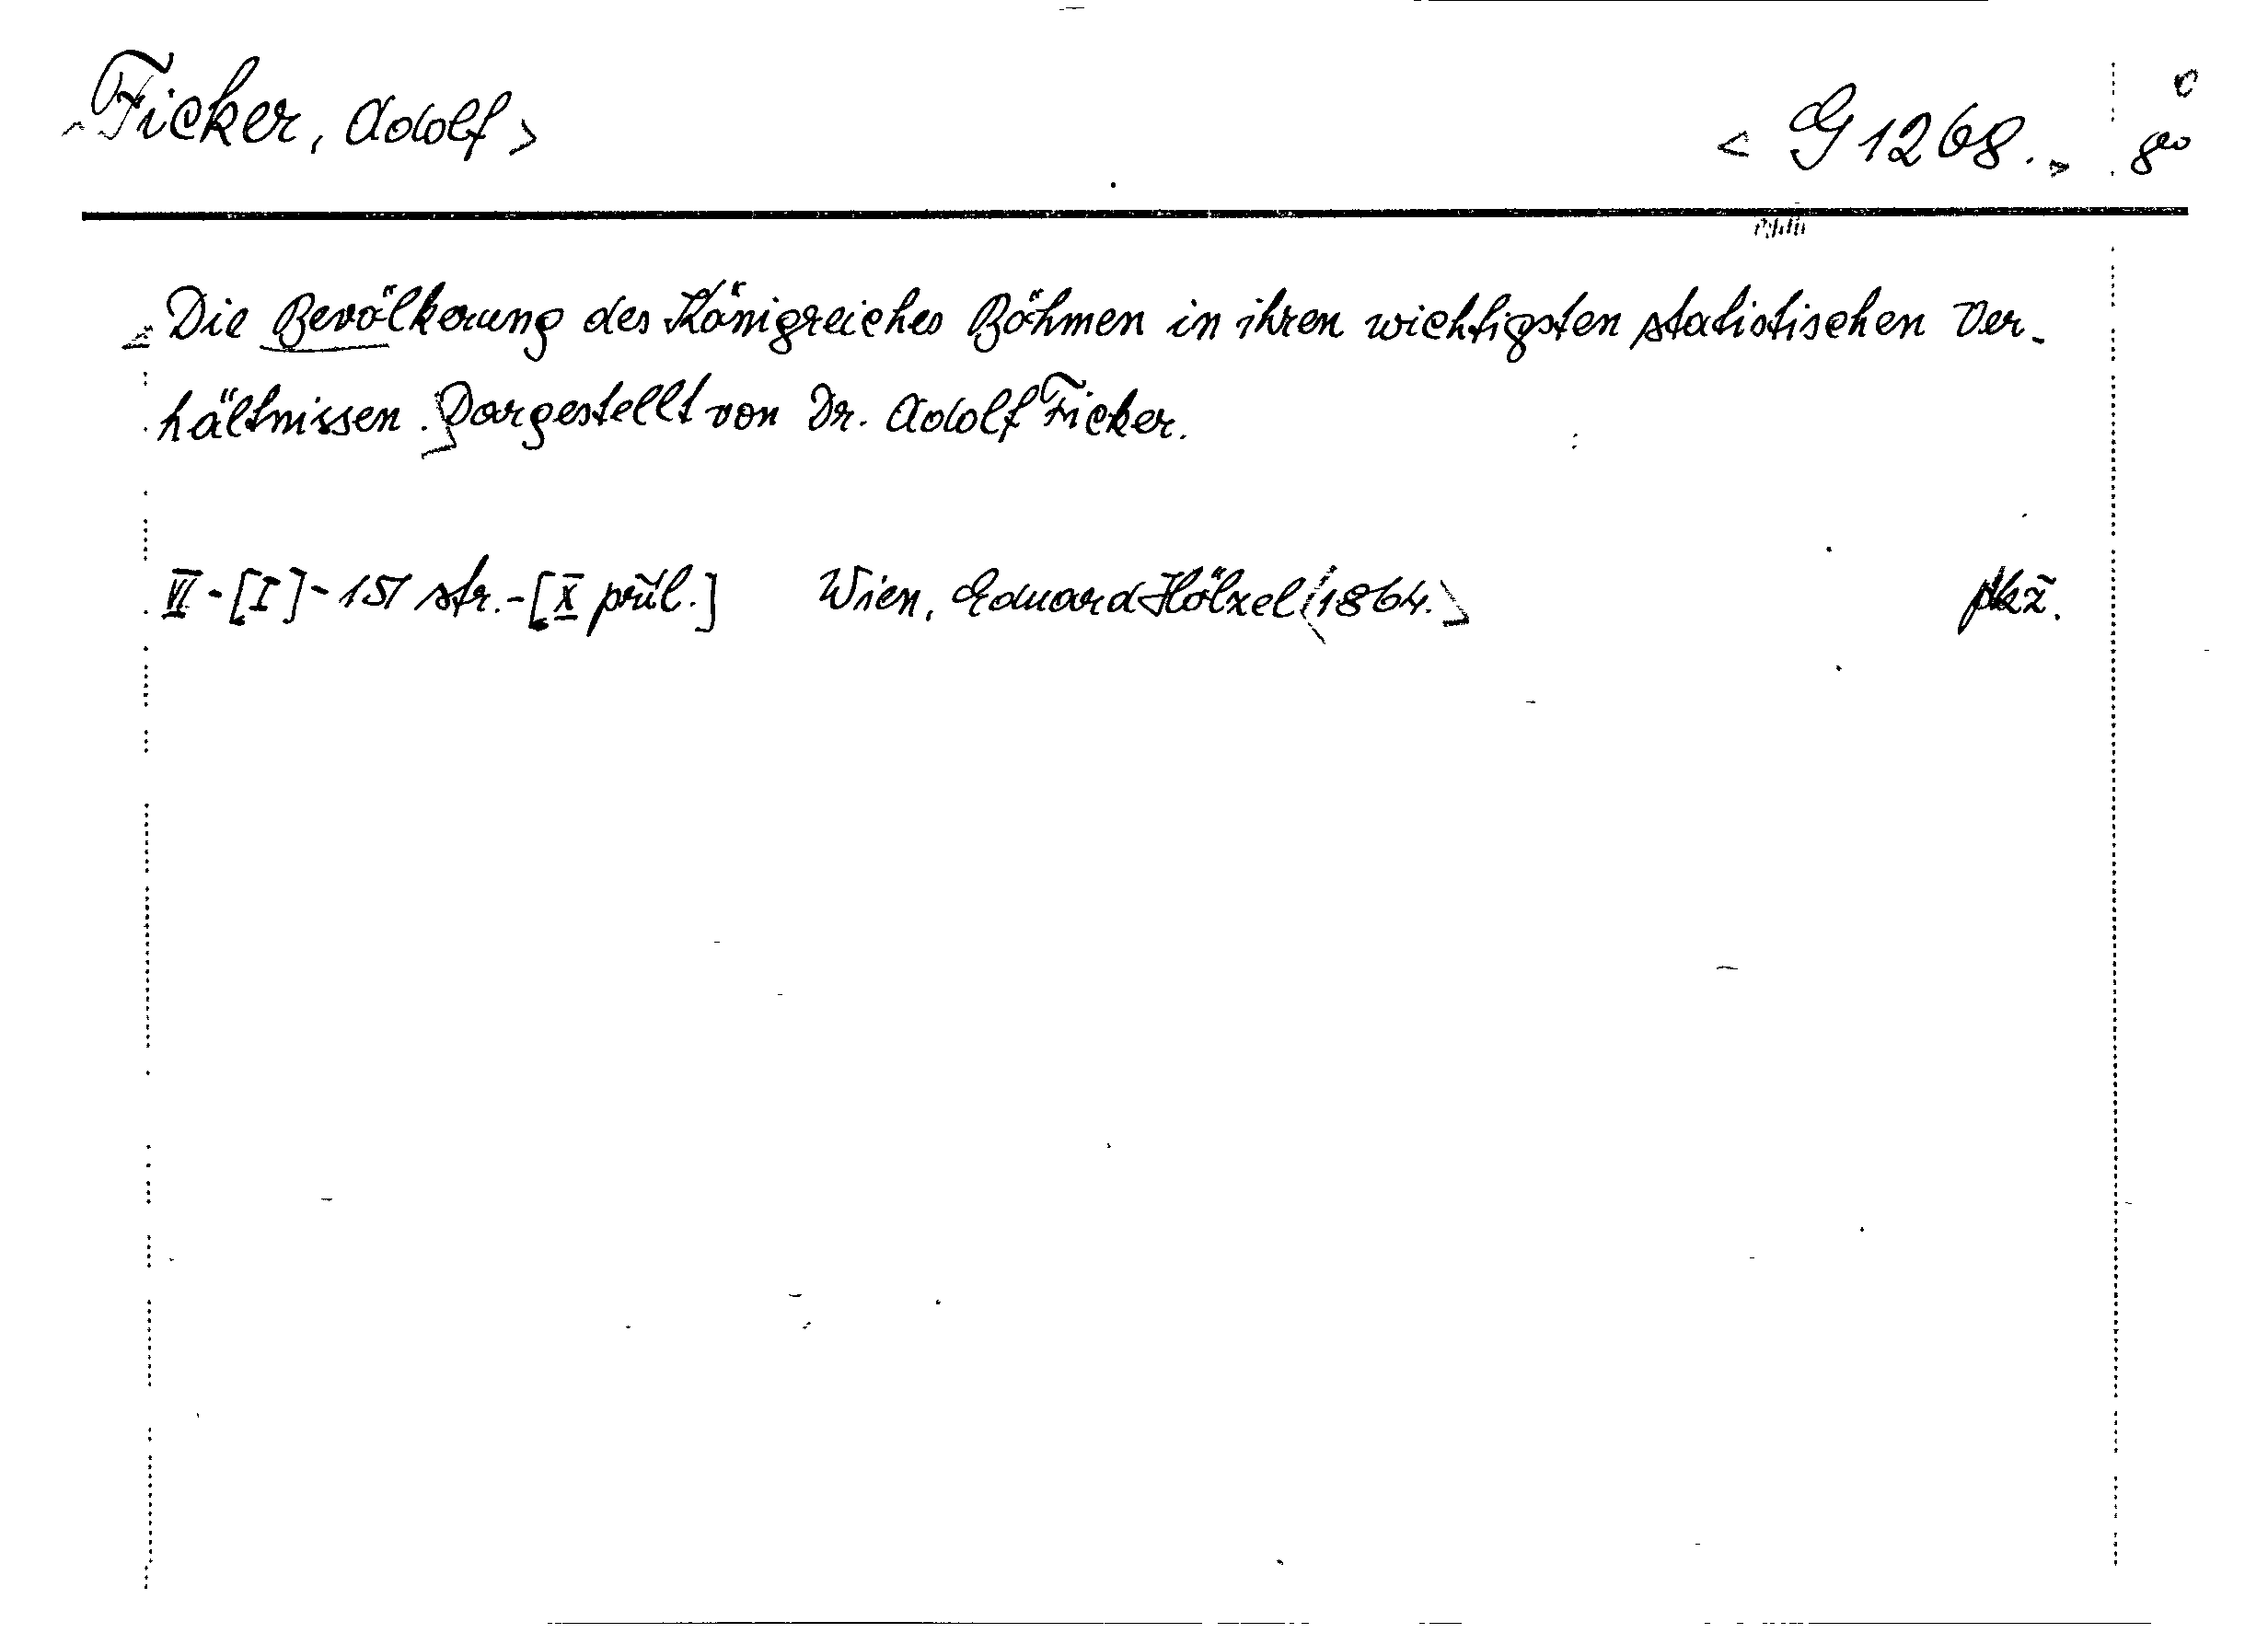 Ficker, Adolf > < G 1268. > geo
Die Bevölkerung des Königreiches Böhmen in ihren wichtigsten statistischen Ver-
hältnissen. Dargestellt von Dr. Adolf Ficker.
VI - [I] - 151 str. - [X příl.] Wien, Eduard Hölzel 1864. pkž.